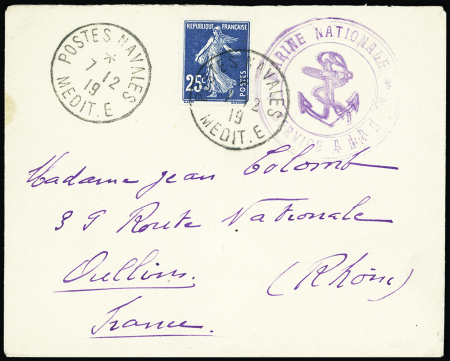 POSTES NAVALES
*
7 12
19
MEDIT. E
REPUBLIQUE FRANÇAISE
25c
POSTES
NAVALES
12
19
MEDIT. E
MARINE NATIONALE
SERVICE A LA MER
Madame Jean Colomb
39 Route Nationale
Oullins. (Rhône)
France.